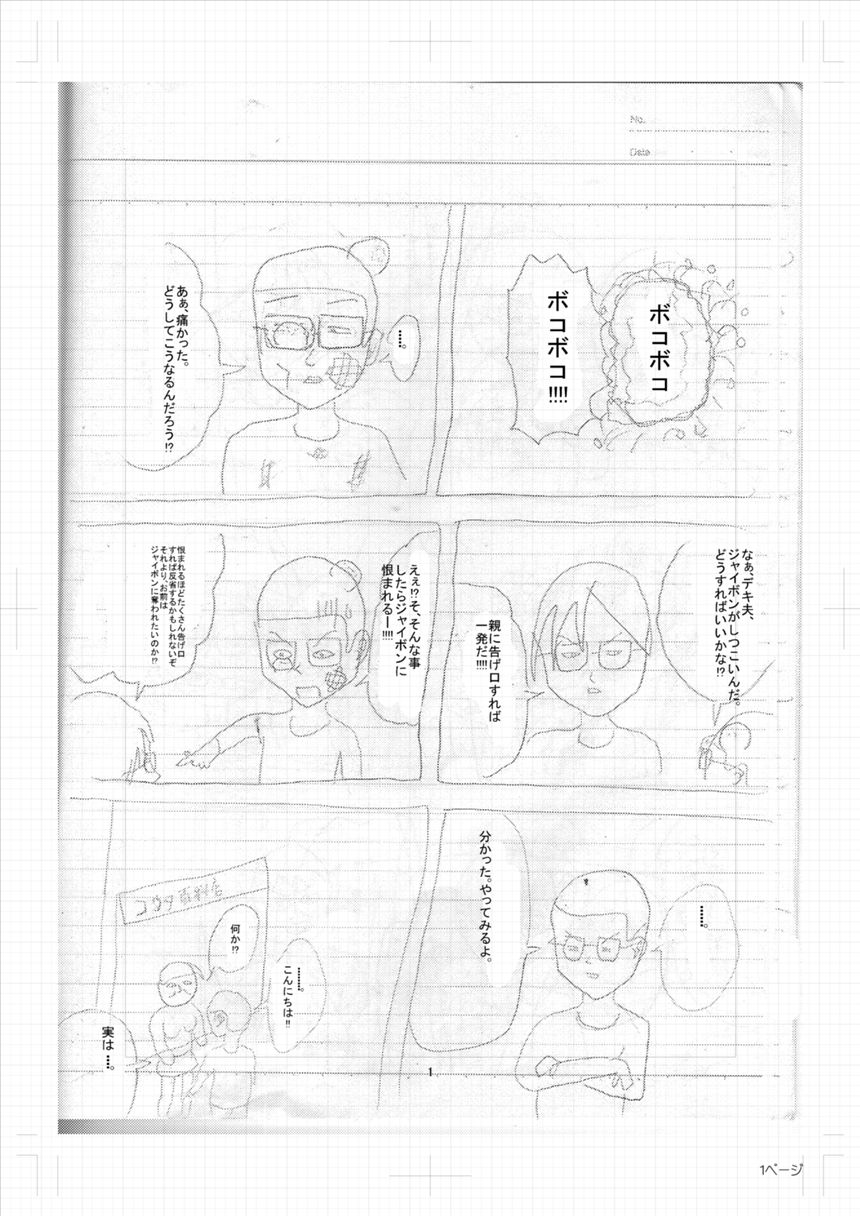 No.
Date
ボコボコ
ボコボコ!!!!
……。
あぁ、痛かった。
どうしてこうなるんだろう!?
なぁ、デキ夫、
ジャイボンがしつこいんだ。
どうすればいいかな!?
親に告げ口すれば
一発だ!!!!
えぇ!?そ、そんな事
したらジャイボンに
恨まれるー!!!!
恨まれるほどたくさん告げ口
すれば反省するかもしれないぞ
それより、お前は
ジャイボンに奪われたいのか!?
……。
分かった。やってみるよ。
……。
こんにちは!!
何か!?
実は……。
1
1ページ